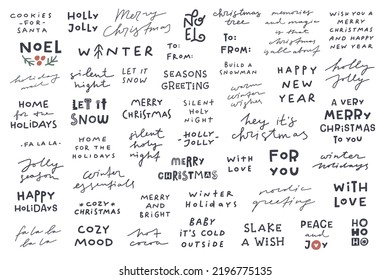 COOKIES
-FOR-
SANTA
HOLLY
JOLLY
Merry
Christmas
NOEL
christmas
tree
memories
and magic
is that
christmas
is all about
WISH YOU A
MERRY
CHRISTMAS
AND HAPPY
NEW YEAR
NOEL
WINTER
TO:
FROM:
TO:
FROM:
holiday
silent
night
LET IT
SNOW
SEASONS
GREETING
BUILD A
SNOWMAN
warm
winter
wishes
HAPPY
NEW
YEAR
holly
jolly
HOME
for the
HOLIDAYS
LET IT
SNOW
MERRY
CHRISTMAS
SILENT
HOLY
NIGHT
hey it's
christmas
A VERY
MERRY
CHRISTMAS
TO YOU
-FA LA LA-
HOME
FOR THE
HOLIDAYS
silent
holy
night
-HOLLY-
JOLLY-
Jolly
season
winter
essentials
MERRY
CHRISTMAS
WITH
LOVE
FOR
YOU
winter
holidays
HAPPY
HOLIDAYS
*COZY*
CHRISTMAS
MERRY
AND
BRIGHT
WINTER
HOLIDAYS
nordic
greeting
WITH
LOVE
fa la la
la la
COZY
MOOD
hot
cocoa
BABY
IT'S COLD
OUTSIDE
SLAKE
A WISH
PEACE
and
JOY
HO
HO
HO
shutterstock
IMAGE ID: 2196775135
www.shutterstock.com